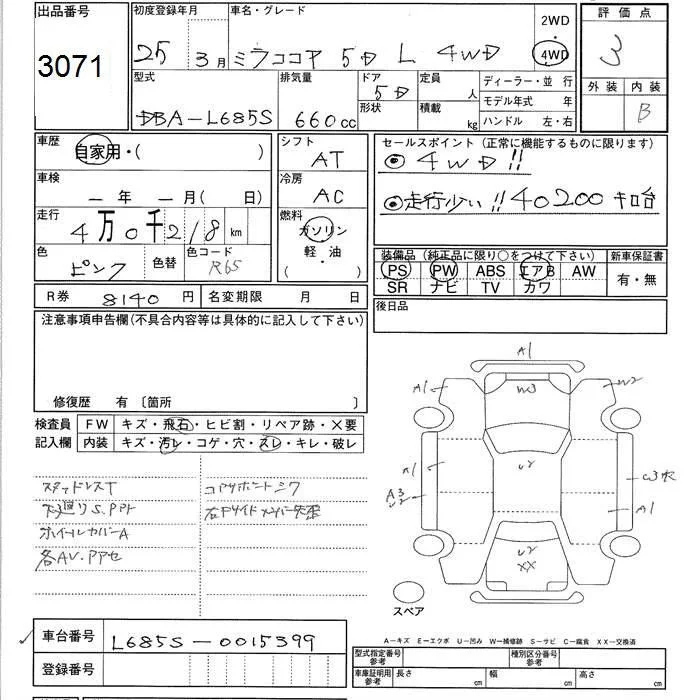 出品番号 初度登録年月 車名・グレード 2WD・4WD 評価点
3071 25年3月 ミラココア 5D L 4WD 3
型式 排気量 ドア 定員 人 ディーラー・並行 外装 内装
DBA-L685S 660cc 5D 形状 積載 kg モデル年式 年 B
ハンドル 左・右
車歴 自家用・( ) シフト AT セールスポイント(正常に機能するものに限ります)
◎4WD!!
車検 ー年 ー月( 日) 冷房 AC
◎走行少い!! 40200キロ台
走行 4万0千218km 燃料 ガソリン 軽・油 ( )
色 ピンク 色替 色コード R65
装備品(純正品に限り○をつけて下さい) 新車保証書
PS PW ABS エアB AW 有・無
SR ナビ TV カワ
R券 8140円 名変期限 月 日 後日品
注意事項申告欄(不具合内容等は具体的に記入して下さい)
修復歴 有 〔箇所 〕
検査員記入欄 FW キズ・飛石・ヒビ割・リペア跡・×要
内装 キズ・汚レ・コゲ・穴・スレ・キレ・破レ
スタッドレスT
下廻りS.PPT
ホイールカバーA
各AV.PPセ
コアサポートシワ
A1
A1 W3 W2
A1 U2 W3
A3 U2 A1
U2
XX
スペア
A-キズ E-エクボ U-凹み W-補修跡 S-サビ C-腐食 XX-交換済
車台番号 L685S-0015399
登録番号
型式指定番号 参考 種別区分番号 参考
車庫証明用 参考 長さ cm 幅 cm 高さ cm